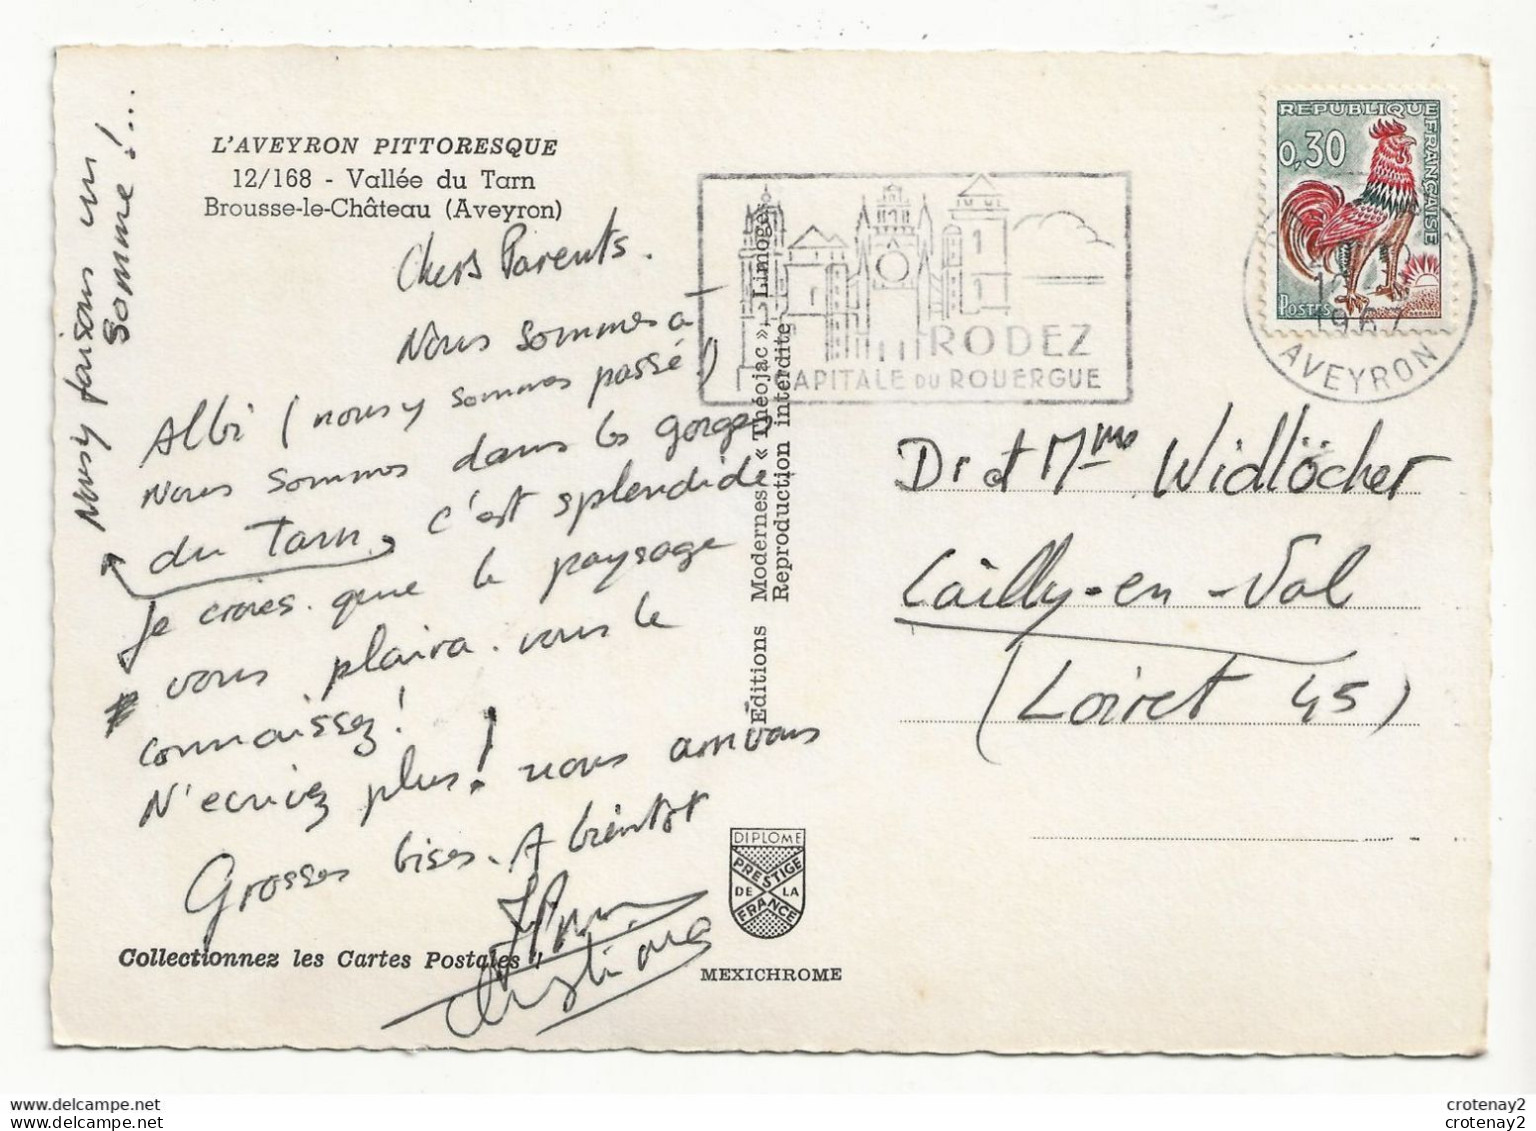 L'AVEYRON PITTORESQUE
12/168 - Vallée du Tarn
Brousse-le-Château (Aveyron)
Chers Parents.
Nous sommes à
Albi (nous y sommes passé!)
Nous sommes dans les gorges
du Tarn, c'est splendide
Je crois que le paysage
vous plaira. vous le
connaissez!
N'ecrivez plus! nous arrivons
Grosses bises. A bientot
Christiane
Nous y faisons un
somme!...
Collectionnez les Cartes Postales !
Editions Modernes « Théojac », Limoges
Reproduction interdite
DIPLOME
PRESTIGE
DE LA
FRANCE
MEXICHROME
RODEZ
CAPITALE DU ROUERGUE
REPUBLIQUE FRANÇAISE
0,30
POSTES
1967
AVEYRON
Dr et Mme Widlöcher
Cailly-en-Val
(Loiret 45)
crotenay2
crotenay2
crotenay2
crotenay2